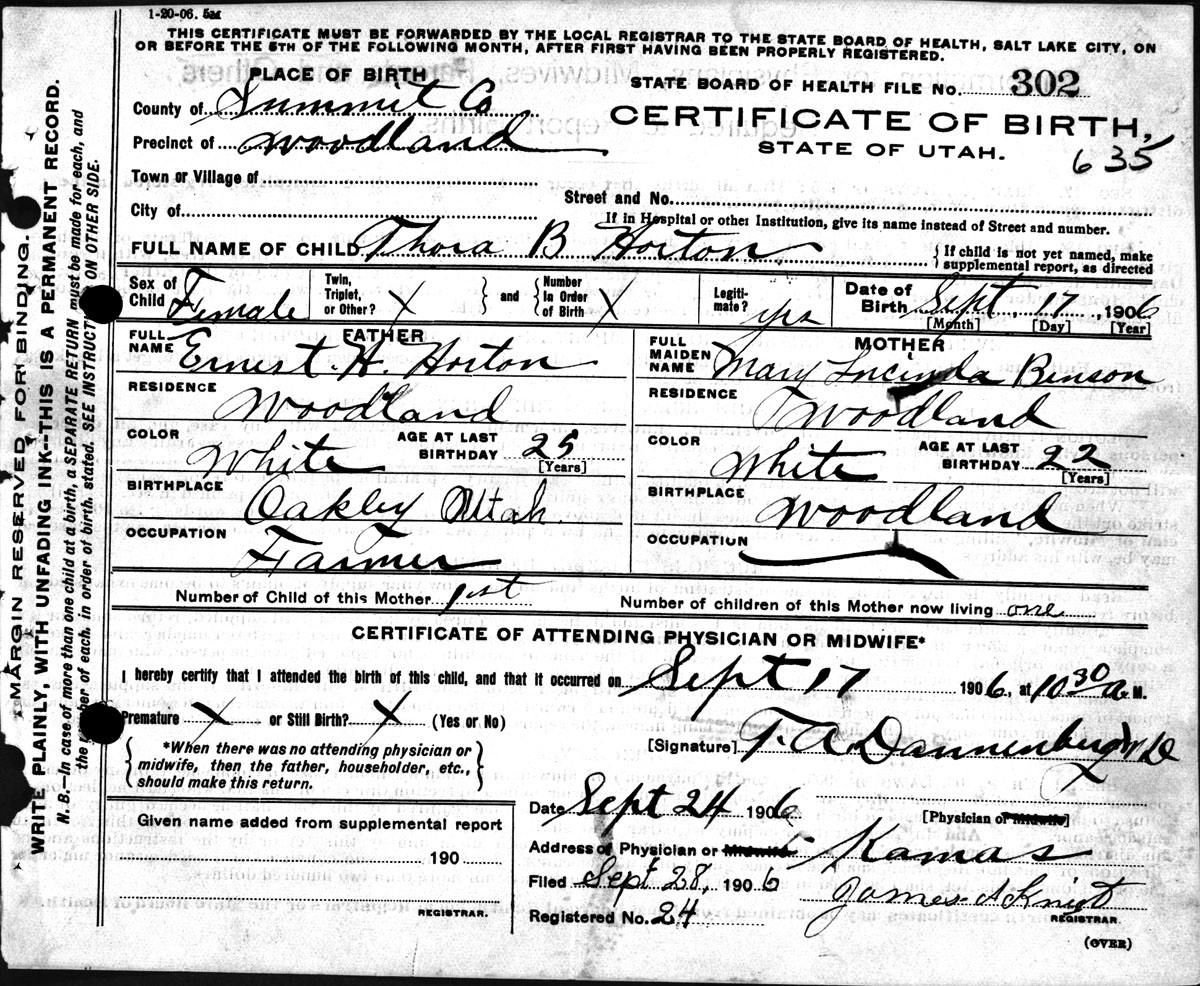 1-20-06. 5M
THIS CERTIFICATE MUST BE FORWARDED BY THE LOCAL REGISTRAR TO THE STATE BOARD OF HEALTH, SALT LAKE CITY, ON
OR BEFORE THE 5TH OF THE FOLLOWING MONTH, AFTER FIRST HAVING BEEN PROPERLY REGISTERED.
PLACE OF BIRTH
County of Summit Co
Precinct of Woodland
Town or Village of
City of
STATE BOARD OF HEALTH FILE No. 302
CERTIFICATE OF BIRTH,
STATE OF UTAH.
635
Street and No.
If in Hospital or other Institution, give its name instead of Street and number.
FULL NAME OF CHILD Thora B Horton
{ If child is not yet named, make
supplemental report, as directed
Sex of Child Female
Twin, Triplet, or Other? X
and
Number In Order of Birth X
Legitimate? yes
Date of Birth Sept. 17, 1906
[Month] [Day] [Year]
FATHER
FULL NAME Ernest. H. Horton
RESIDENCE Woodland
COLOR White
AGE AT LAST BIRTHDAY 25
[Years]
BIRTHPLACE Oakley Utah.
OCCUPATION Farmer
MOTHER
FULL MAIDEN NAME Mary Lucinda Benson
RESIDENCE Woodland
COLOR White
AGE AT LAST BIRTHDAY 22
[Years]
BIRTHPLACE Woodland
OCCUPATION
Number of Child of this Mother 1st
Number of children of this Mother now living one
CERTIFICATE OF ATTENDING PHYSICIAN OR MIDWIFE*
I hereby certify that I attended the birth of this child, and that it occurred on Sept 17 1906, at 10 30 a M.
Premature X or Still Birth? X (Yes or No)
*When there was no attending physician or
midwife, then the father, householder, etc.,
should make this return.
[Signature] T. A Dannenberg MD
[Physician or Midwife]
Date Sept 24 1906
Address of Physician or Midwife Kamas
Filed Sept 28, 1906
James A Knight
REGISTRAR.
Registered No. 24
(OVER)
Given name added from supplemental report
190
REGISTRAR.
MARGIN RESERVED FOR BINDING.
WRITE PLAINLY, WITH UNFADING INK--THIS IS A PERMANENT RECORD.
N. B.—In case of more than one child at a birth, a SEPARATE RETURN must be made for each, and
the number of each, in order of birth, stated. SEE INSTRUCTIONS ON OTHER SIDE.